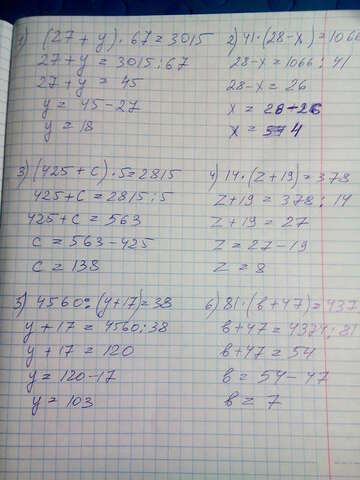 1) (27 + y) · 67 = 3015
27 + y = 3015 : 67
27 + y = 45
y = 45 - 27
y = 18
2) 41 · (28 - x) = 1066
28 - x = 1066 : 41
28 - x = 26
x = 28 - 26
x =
3) (425 + c) · 5 = 2815
425 + c = 2815 : 5
425 + c = 563
c = 563 - 425
c = 138
4) 14 · (z + 19) = 378
z + 19 = 378 : 14
z + 19 = 27
z = 27 - 19
z = 8
5) 4560 : (y + 17) = 38
y + 17 = 4560 : 38
y + 17 = 120
y = 120 - 17
y = 103
6) 81 · (в + 47) = 437
в + 47 = 4374 : 81
в + 47 = 54
в = 54 - 47
в = 7